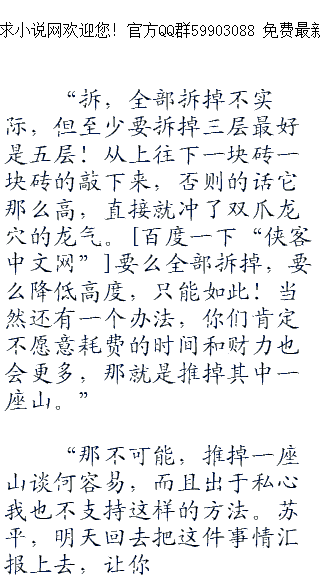 求小说网欢迎您！官方QQ群59903088 免费最新
“拆，全部拆掉不实
际，但至少要拆掉三层最好
是五层！从上往下一块砖一
块砖的敲下来，否则的话它
那么高，直接就冲了双爪龙
穴的龙气。[百度一下“侠客
中文网”]要么全部拆掉，要
么降低高度，只能如此！当
然还有一个办法，你们肯定
不愿意耗费的时间和财力也
会更多，那就是推掉其中一
座山。”
“那不可能，推掉一座
山谈何容易，而且出于私心
我也不支持这样的方法。苏
平，明天回去把这件事情汇
报上去，让你